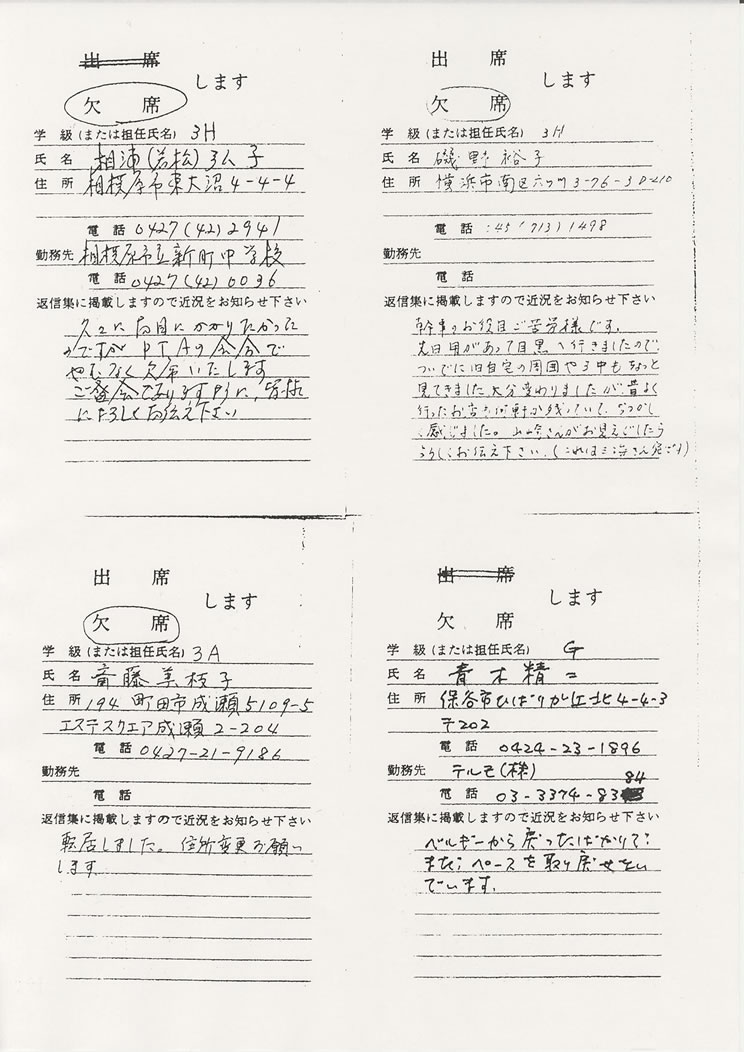 出席
します
欠席
学級(または担任氏名) 3H
氏名 相浦(若松)弘子
住所 相模原市東大沼4-4-4
電話 0427(42)2941
勤務先 相模原市立新町中学校
電話 0427(42)0036
返信集に掲載しますので近況をお知らせ下さい
久々にお目にかかりたかった
のですがPTAの会合で
やむなく欠席いたします
ご盛会でありますように、皆様
によろしくお伝え下さい
出席
します
欠席
学級(または担任氏名) 3H
氏名 磯野裕子
住所 横浜市南区六ツ川3-76-3 D-210
電話 045(713)1498
勤務先
電話
返信集に掲載しますので近況をお知らせ下さい
幹事のお役目ご苦労様です。
先日用があって目黒へ行きましたので、
ついでに旧自宅の周囲や三中もちょっと
見てきました。大分変わりましたが、昔よく
行ったお店も何軒か残っていて、なつかし
く感じました。山崎さんがお見えでしたら
よろしくお伝え下さい。(これは三浩さん宛です)
出席
します
欠席
学級(または担任氏名) 3A
氏名 斎藤美枝子
住所 194 町田市成瀬5109-5
エステスクエア成瀬2-204
電話 0427-21-9186
勤務先
電話
返信集に掲載しますので近況をお知らせ下さい
転居しました。住所変更お願い
します
出席
します
欠席
学級(または担任氏名) G
氏名 青木精二
住所 保谷市ひばりが丘北4-4-3
〒202
電話 0424-23-1896
勤務先 テルモ(株)
電話 03-3374-8384
返信集に掲載しますので近況をお知らせ下さい
ベルギーから戻ったばかりで
まだペースを取り戻せない
でいます。